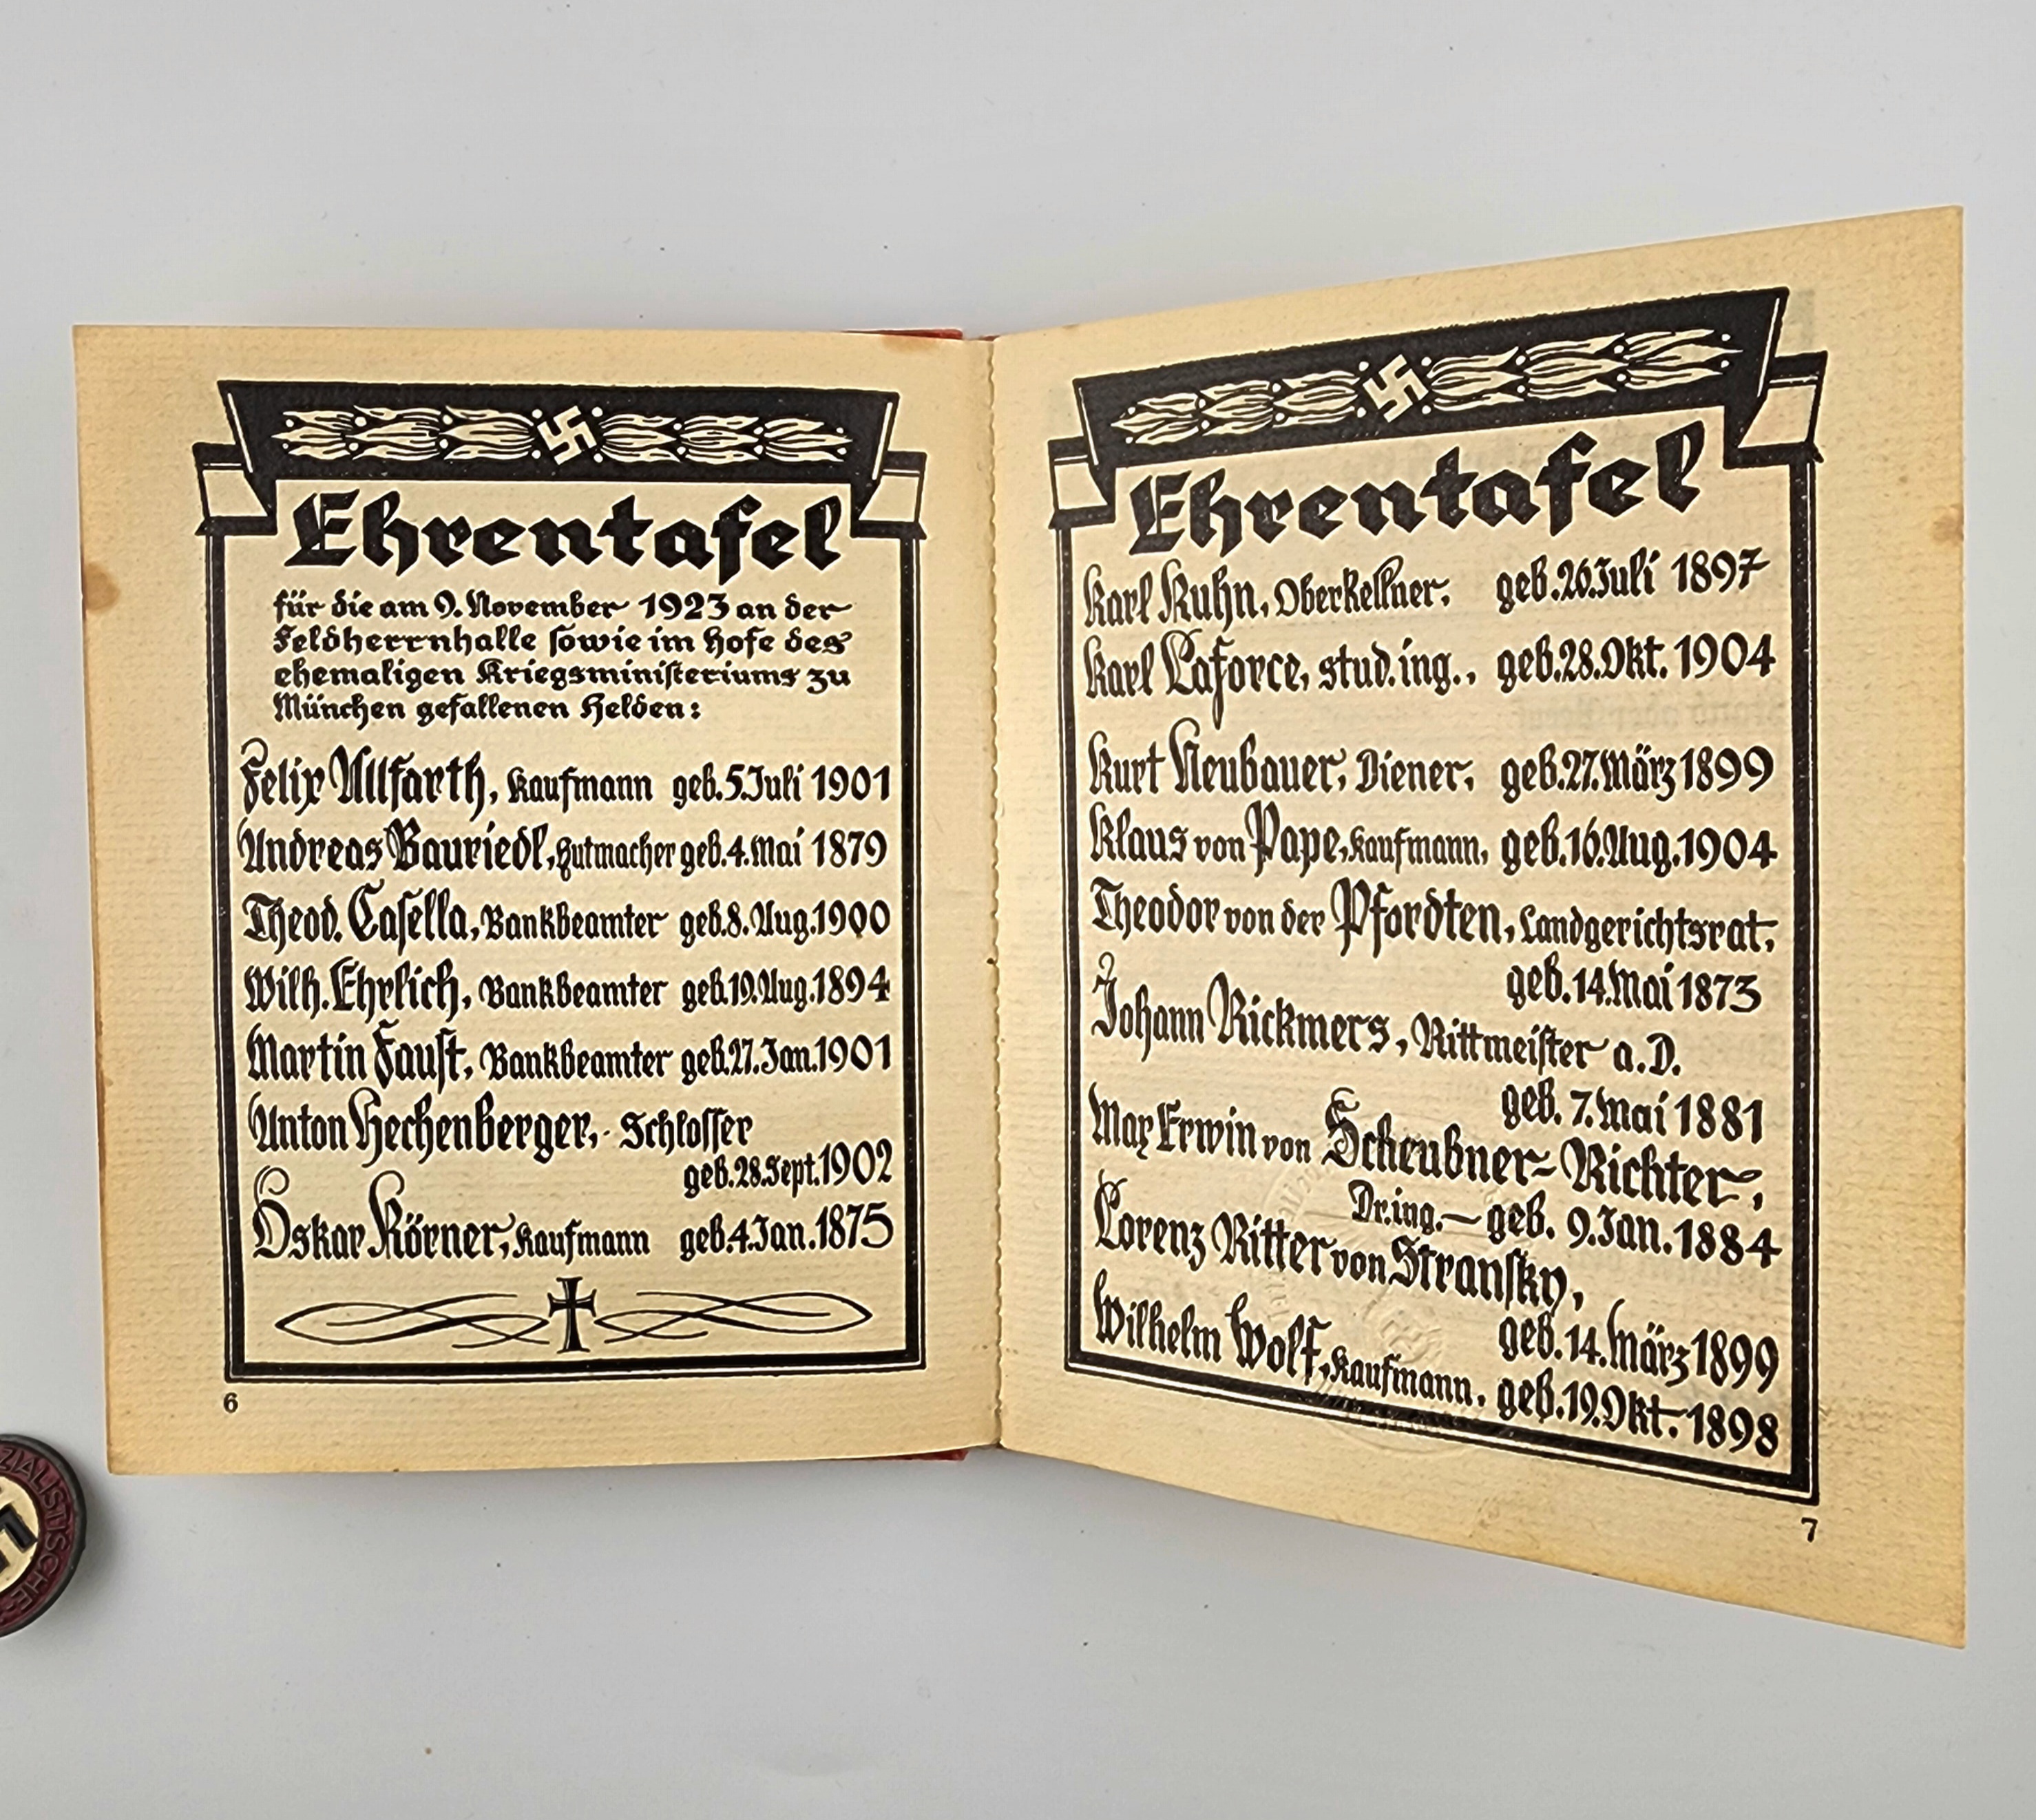 Ehrentafel
für die am 9. November 1923 an der
Feldherrnhalle sowie im Hofe des
ehemaligen Kriegsministeriums zu
München gefallenen Helden:
Felix Allfarth, Kaufmann geb. 5. Juli 1901
Andreas Bauriedl, Hutmacher geb. 4. Mai 1879
Theod. Casella, Bankbeamter geb. 8. Aug. 1900
Wilh. Ehrlich, Bankbeamter geb. 19. Aug. 1894
Martin Faust, Bankbeamter geb. 27. Jan. 1901
Anton Hechenberger, Schlosser
geb. 28. Sept. 1902
Oskar Körner, Kaufmann geb. 4. Jan. 1875
6
Ehrentafel
Karl Kuhn, Oberkellner, geb. 26. Juli 1897
Karl Laforce, stud. ing., geb. 28. Okt. 1904
Kurt Neubauer, Diener, geb. 27. März 1899
Klaus von Pape, Kaufmann, geb. 16. Aug. 1904
Theodor von der Pfordten, Landgerichtsrat,
geb. 14. Mai 1873
Johann Rickmers, Rittmeister a. D.
geb. 7. Mai 1881
Max Erwin von Scheubner-Richter,
Dr. ing. – geb. 9. Jan. 1884
Lorenz Ritter von Stransky,
geb. 14. März 1899
Wilhelm Wolf, Kaufmann, geb. 19. Okt. 1898
7